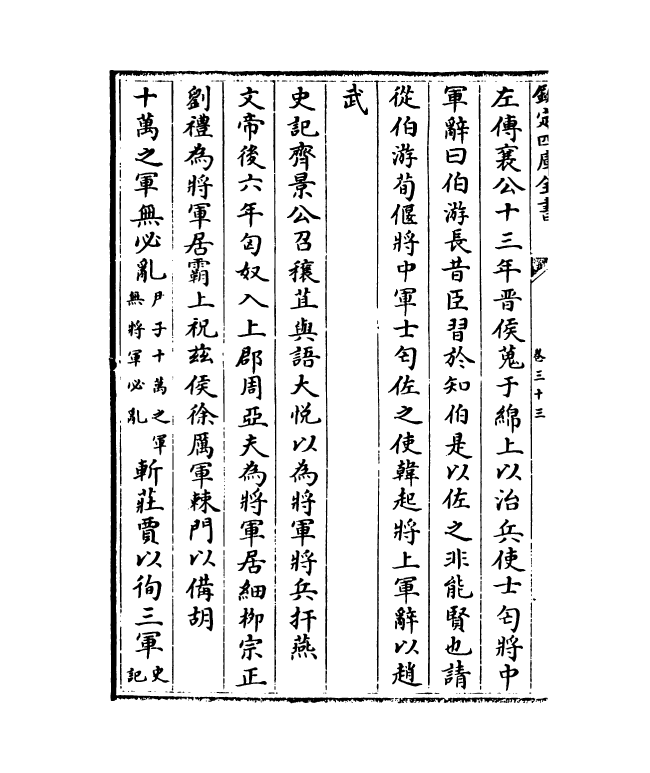 欽定四庫全書
卷三十三
左傳襄公十三年晋侯蒐于綿上以治兵使士匄將中
軍辭曰伯游長昔臣習於知伯是以佐之非能賢也請
從伯游荀偃將中軍士匄佐之使韓起將上軍辭以趙
武
史記齊景公召穰苴與語大悅以為將軍將兵扞燕
文帝後六年匈奴入上郡周亞夫為將軍居細柳宗正
劉禮為將軍居霸上祝兹侯徐厲軍棘門以備胡
十萬之軍無必亂尹子十萬之軍無將軍必亂斬莊賈以徇三軍史記